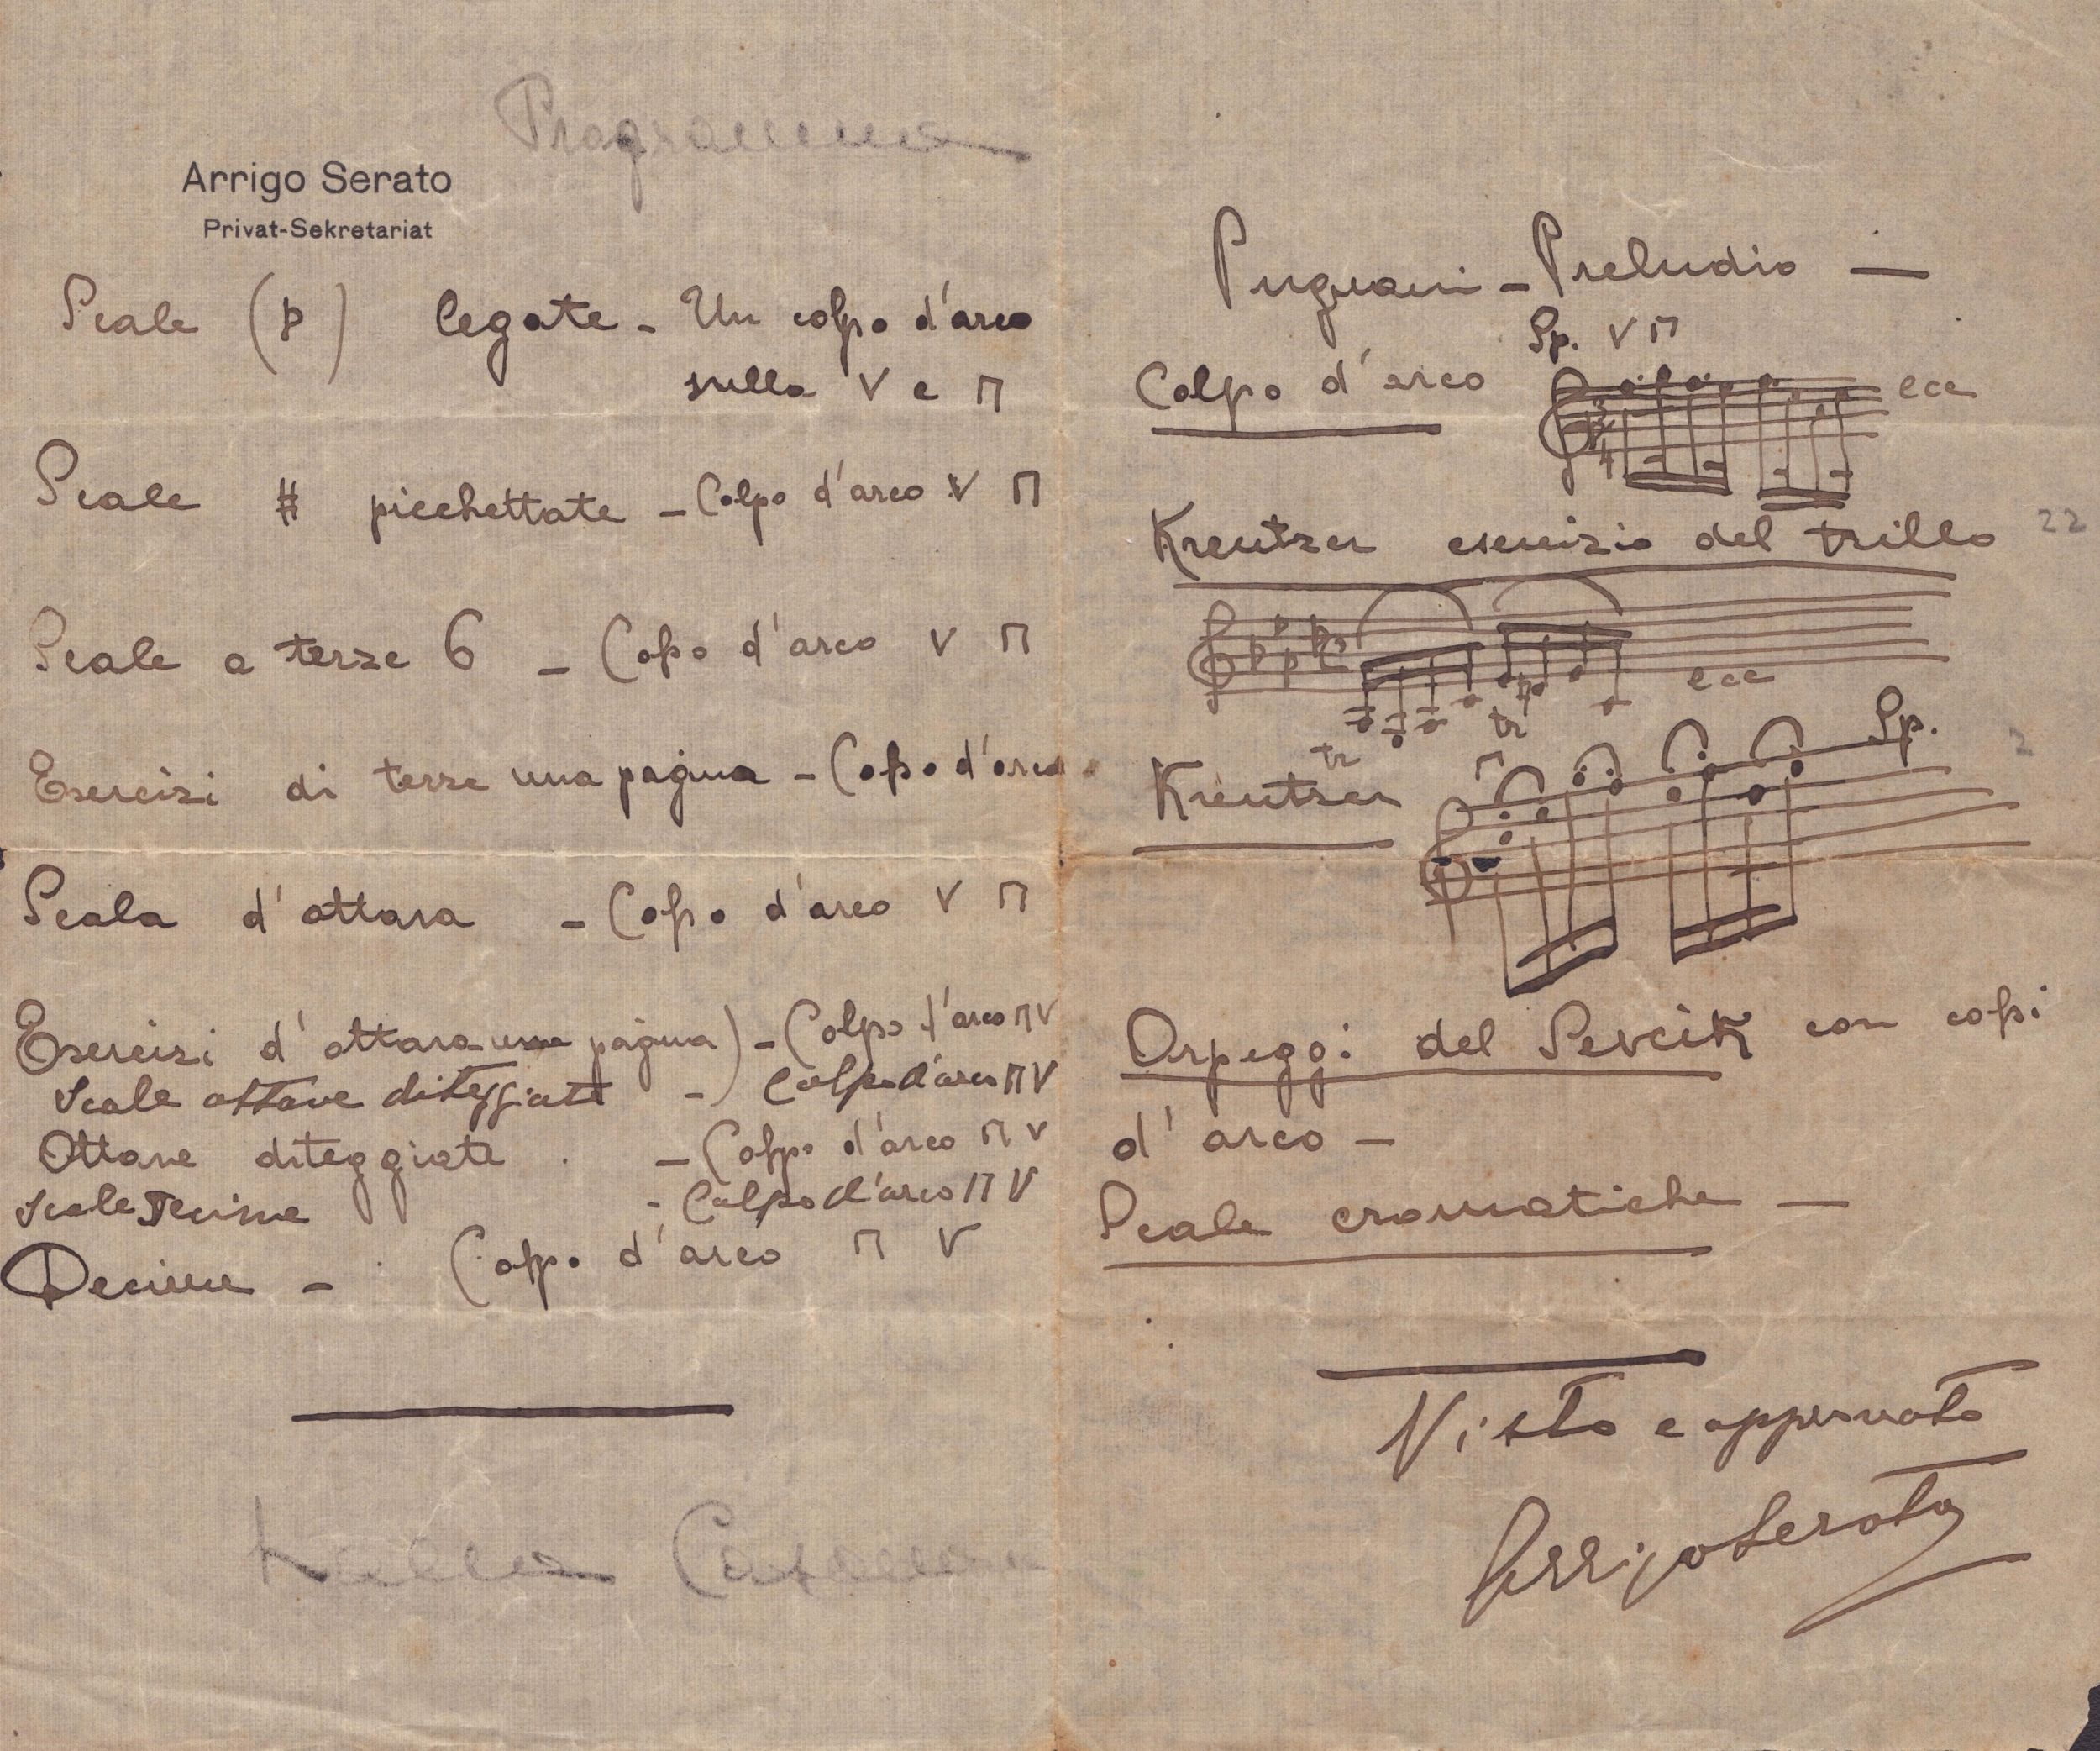 Programma
Arrigo Serato
Privat-Sekretariat
Scale (♭) legate - Un colpo d'arco
sulla V e Π
Scale # picchettate - Colpo d'arco V Π
Scale a terze 6 - Colpo d'arco V Π
Esercizi di terze una pagina - Colpo d'arco
Scala d'ottava - Colpo d'arco V Π
Esercizi d'ottava una pagina) - Colpo d'arco Π V
Scale ottave diteggiate -) Colpo d'arco Π V
Ottave diteggiate - Colpo d'arco Π V
Scale Decime - Colpo d'arco Π V
Decime - Colpo d'arco Π V
Pugnani - Preludio —
Sp. V Π
Colpo d'arco ecc
Kreutzer esercizio del trillo 22
ecc
tr tr
Sp. 2
Kreutzer Π
Arpeggi del Sevcik con colpi
d'arco -
Scale cromatiche —
Visto e approvato
Arrigo Serato